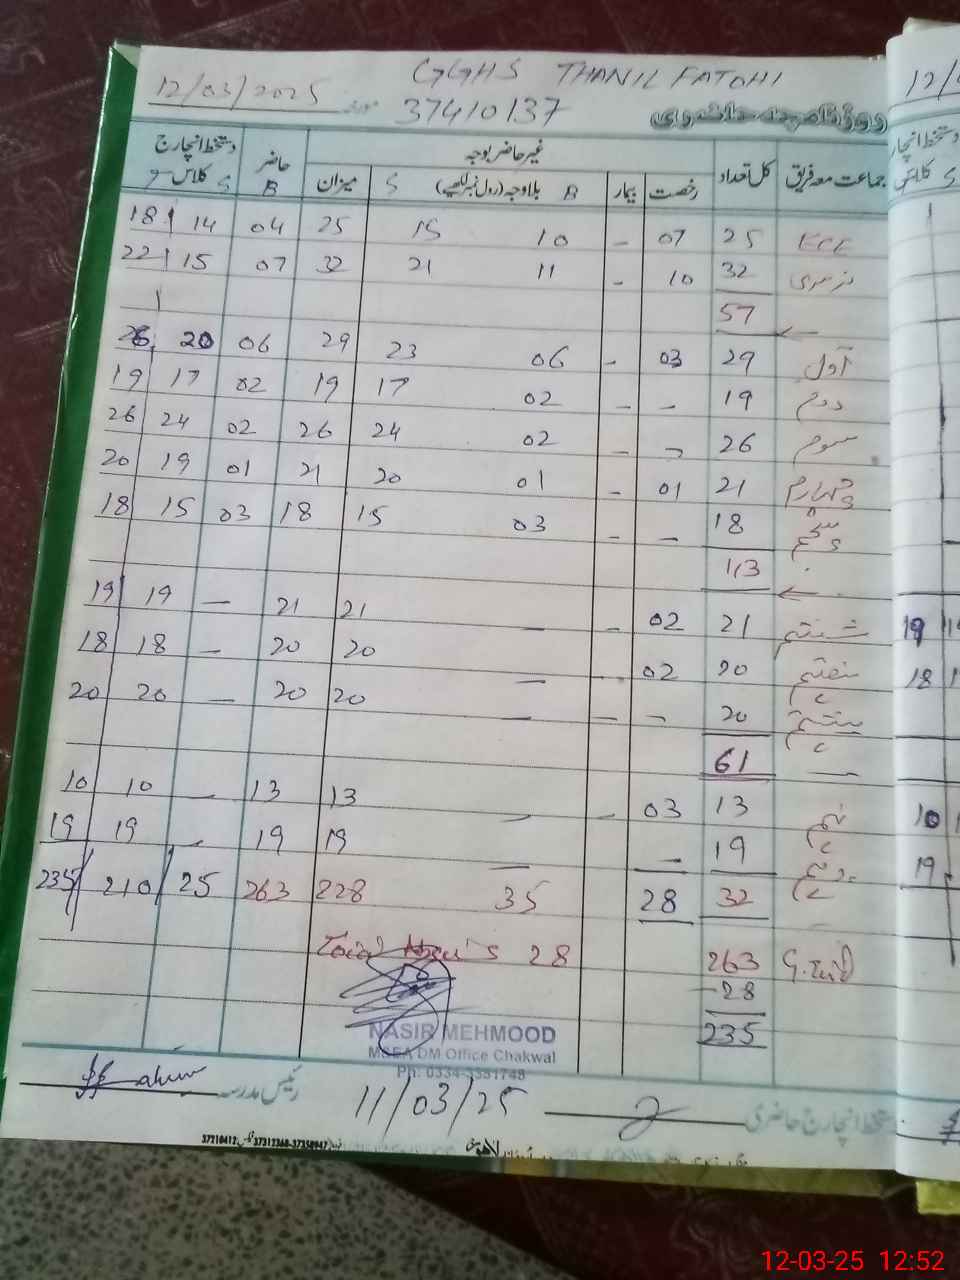 GGHS THANIL FATOHI
12/03/2025 37410137 روزنامچہ حاضری
جماعت معہ فریق کل تعداد رخصت بیمار غیر حاضر بوجہ حاضر دستخط انچارج کلاس
بلاوجہ (رول نمبر لکھیے) B S میزان B S
18 14 04 25 15 10 - 07 25 ECE
22 15 07 32 21 11 - 10 32 نرسری
57
26 20 06 29 23 06 - 03 29 اول
19 17 02 19 17 02 - - 19 دوم
26 24 02 26 24 02 - - 26 سوم
20 19 01 21 20 01 - 01 21 چہارم
18 15 03 18 15 03 - - 18 پنجم
113
19 19 - 21 21 - - 02 21 ششم
18 18 - 20 20 - - 02 20 ہفتم
20 20 - 20 20 - - - 20 ہشتم
61
10 10 - 13 13 - - 03 13 نہم
19 19 - 19 19 - - 19 دہم
235 210 25 263 228 35 28 32
Total 28 263 G.Total
-28
235
NASIR MEHMOOD
MEA DM Office Chakwal
Ph: 0334-3351748
رئیس مدرسہ 11/03/25 دستخط انچارج حاضری
12-03-25 12:52